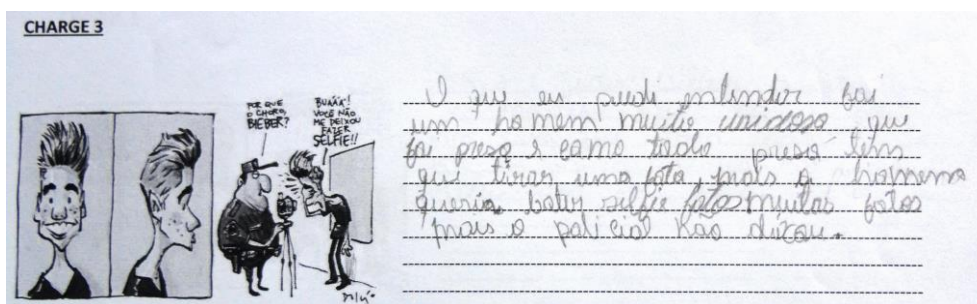 CHARGE 3
POR QUE
O CHORO,
BIEBER?
BUÁÁÁ!
VOCÊ NÃO
ME DEIXOU
FAZER
SELFIE!!
O que eu pude entender foi
um homem muito que
foi preso e como todo preso tem
que tirar uma foto, mais o homem
queria bater selfie fotos muitas fotos
mais o policial não deixou.